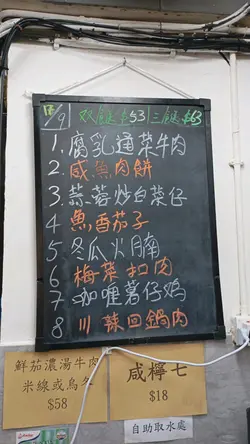 18/9 双餸$53 三餸$63
1.腐乳通菜牛肉
2.咸魚肉餅
3.蒜蓉炒白菜仔
4 魚香茄子
5 冬瓜火腩
6 梅菜扣肉
7 咖喱薯仔鸡
8 川辣回鍋肉
鮮茄濃湯牛肉
米線或烏冬
$58
咸檸七
$18
自助取水處